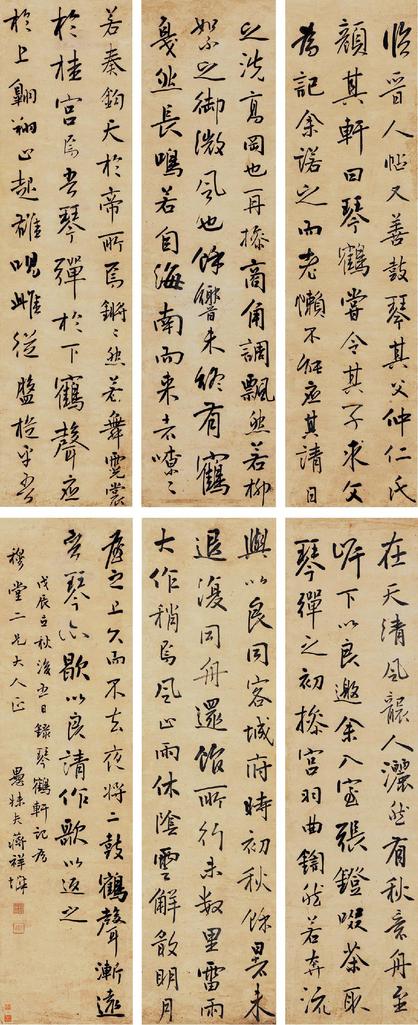 临晉人帖又善鼓琴其父仲仁氏
顔其軒曰琴鶴嘗令其子求文
為記余諾之而老懶不能應其請日
與以良同客城府時初秋餘暑未
退復同舟還館所行未數里雷雨
大作稍焉風止雨休陰雲解散明月
在天清風襲人灑然有秋意舟至
岸下以良邀余入室張鐙啜茶取
琴彈之初操宮羽曲鏘然若奔流
之洗高岡也再操商角調飄然若柳
絮之御微風也餘響未終有鶴
戛然長鳴若自海南而来者嘹々
若奏鈞天於帝所焉鏘々然若舞霓裳
於桂宮焉吾琴彈於下鶴聲应
於上翱翔止起雄唱雌從盤桓乎吾
廬之上久而不去夜將二鼓鶴聲漸遠
吾琴亦歇以良請作歌以返之
戊辰立秋後五日錄琴鶴軒記為
穆堂二兄大人正
愚妹夫蔣祥墀